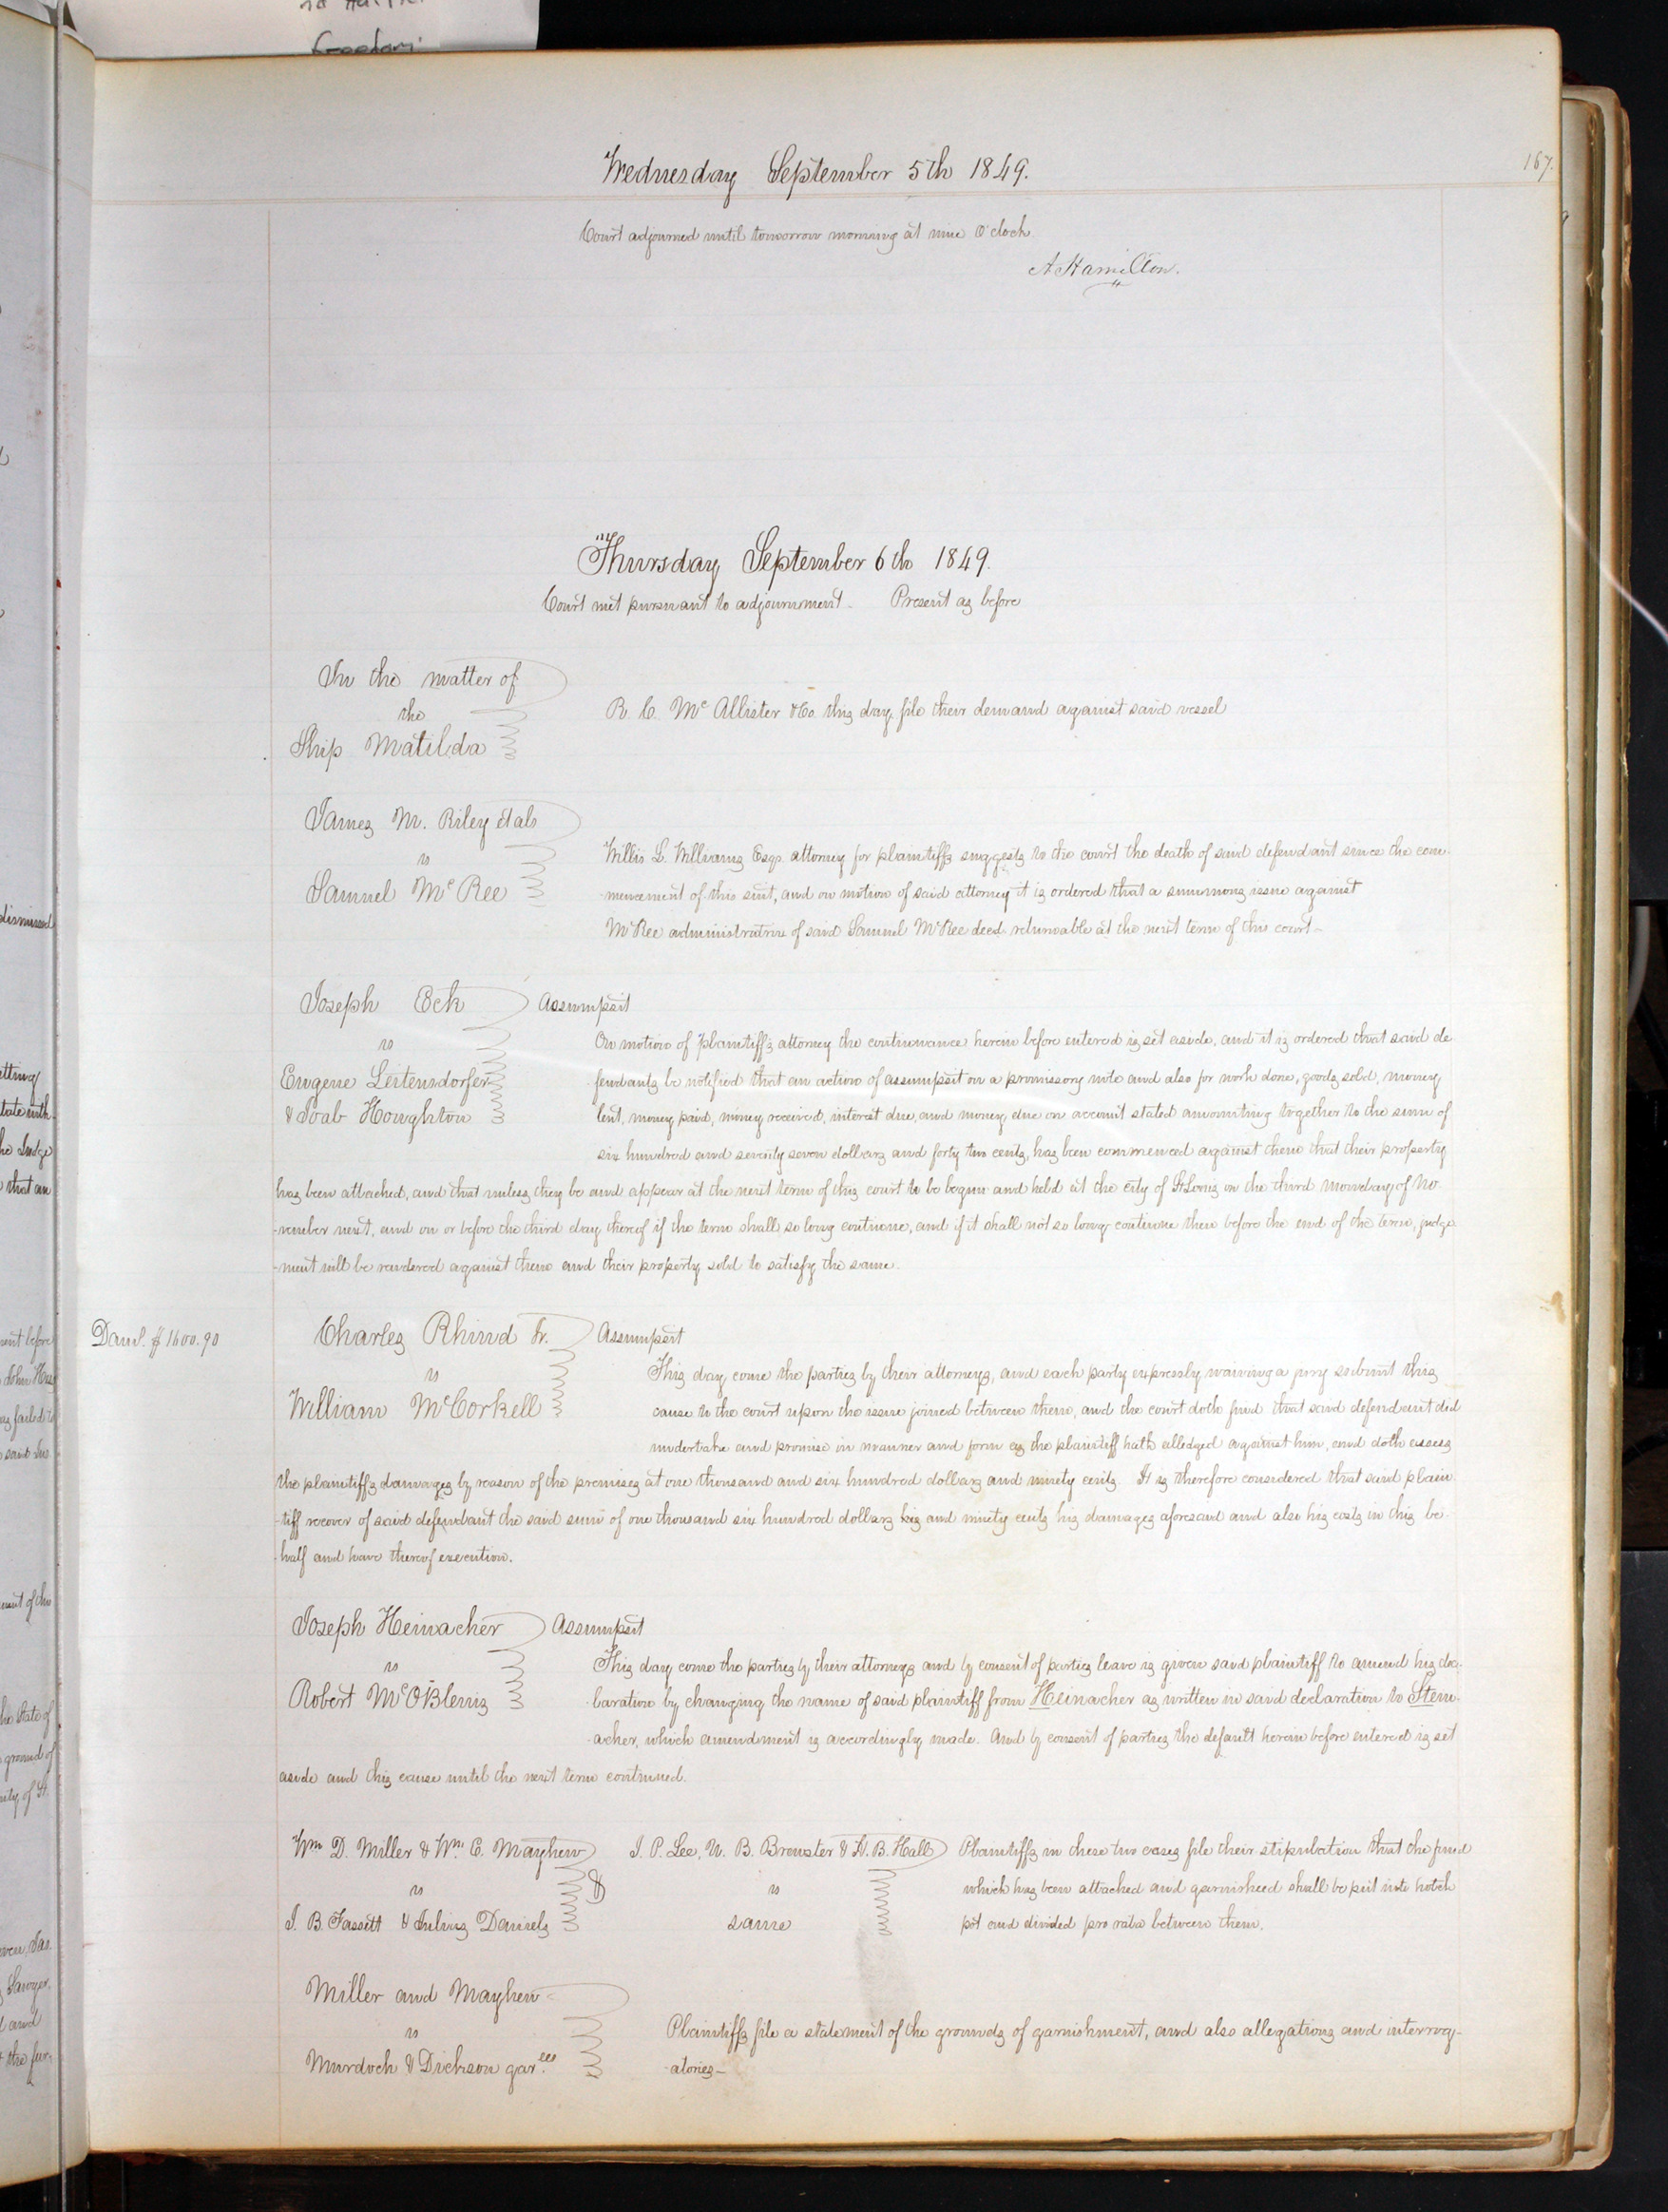 Wednesday September 5th 1849.
167.
Court adjourned until tomorrow morning at nine O'clock
A Hamilton.
Thursday September 6th 1849.
Court met pursuant to adjournment. Present as before
In the matter of
the
Ship Matilda
R. C. McAllister &Co. this day file their demand against said vessel
James M. Riley et als
vs
Samuel McRee
Willis L. Williams Esqr. attorney for plaintiffs suggests to the court the death of said defendant since the com-
-mencement of this suit, and on motion of said attorney it is ordered that a summons issue against
McRee administratrix of said Samuel McRee decd. returnable at the next term of this court -
Joseph Eck
vs
Eugene Leitensdorfer
& Joab Houghton
Assumpsit
On motion of plaintiffs attorney the continuance herein before entered is set aside, and it is ordered that said de
fendants be notified that an action of assumpsit on a promissory note and also for work done, goods sold, money
lent, money paid, money received, interest due, and money due on account stated amounting together to the sum of
six hundred and seventy seven dollars and forty two cents, has been commenced against them that their property
has been attached, and that unless they be and appear at the next term of this court to be begun and held at the city of St Louis on the third monday of No-
-vember next, and on or before the third day thereof if the term shall so long continue, and if it shall not so long continue then before the end of the term, judge
-ment will be rendered against them and their property sold to satisfy the same.
Dam. $1600.90
Charles Rhind Jr.
vs
William McCorkell
Assumpsit
This day come the parties by their attorneys, and each party expressly waiving a jury submit this
cause to the court upon the issue joined between them, and the court doth find that said defendant did
undertake and promise in manner and form as the plaintiff hath alledged against him, and doth assess
the plaintiffs damages by reason of the premises at one thousand and six hundred dollars and ninety cents. It is therefore considered that said plain-
-tiff recover of said defendant the said sum of one thousand six hundred dollars his and ninety cents his damages aforesaid and also his costs in this be-
-half and have thereof execution.
Joseph Heinacher
vs
Robert McOBlenis
Assumpsit
This day come the parties by their attorneys and by consent of parties leave is given said plaintiff to amend his dec-
-laration by changing the name of said plaintiff from Heinacher as written in said declaration to Stein-
-acher, which amendment is accordingly made. And by consent of parties the default herein before entered is set
aside and this cause until the next term continued.
Wm D. Miller & Wm. E. Mayhew
vs
J. B Fassett & Julius Daniels
&
J. P. Lee, N. B. Brewster & H. B. Hall
vs
same
Plaintiffs in these two cases file their stipulation that the fund
which has been attached and garnisheed shall be put into hotch
pot and divided pro rata between them.
Miller and Mayhew
vs
Murdoch & Dickson garees
Plaintiffs file a statement of the grounds of garnishment, and also allegations and interrog-
-atories -